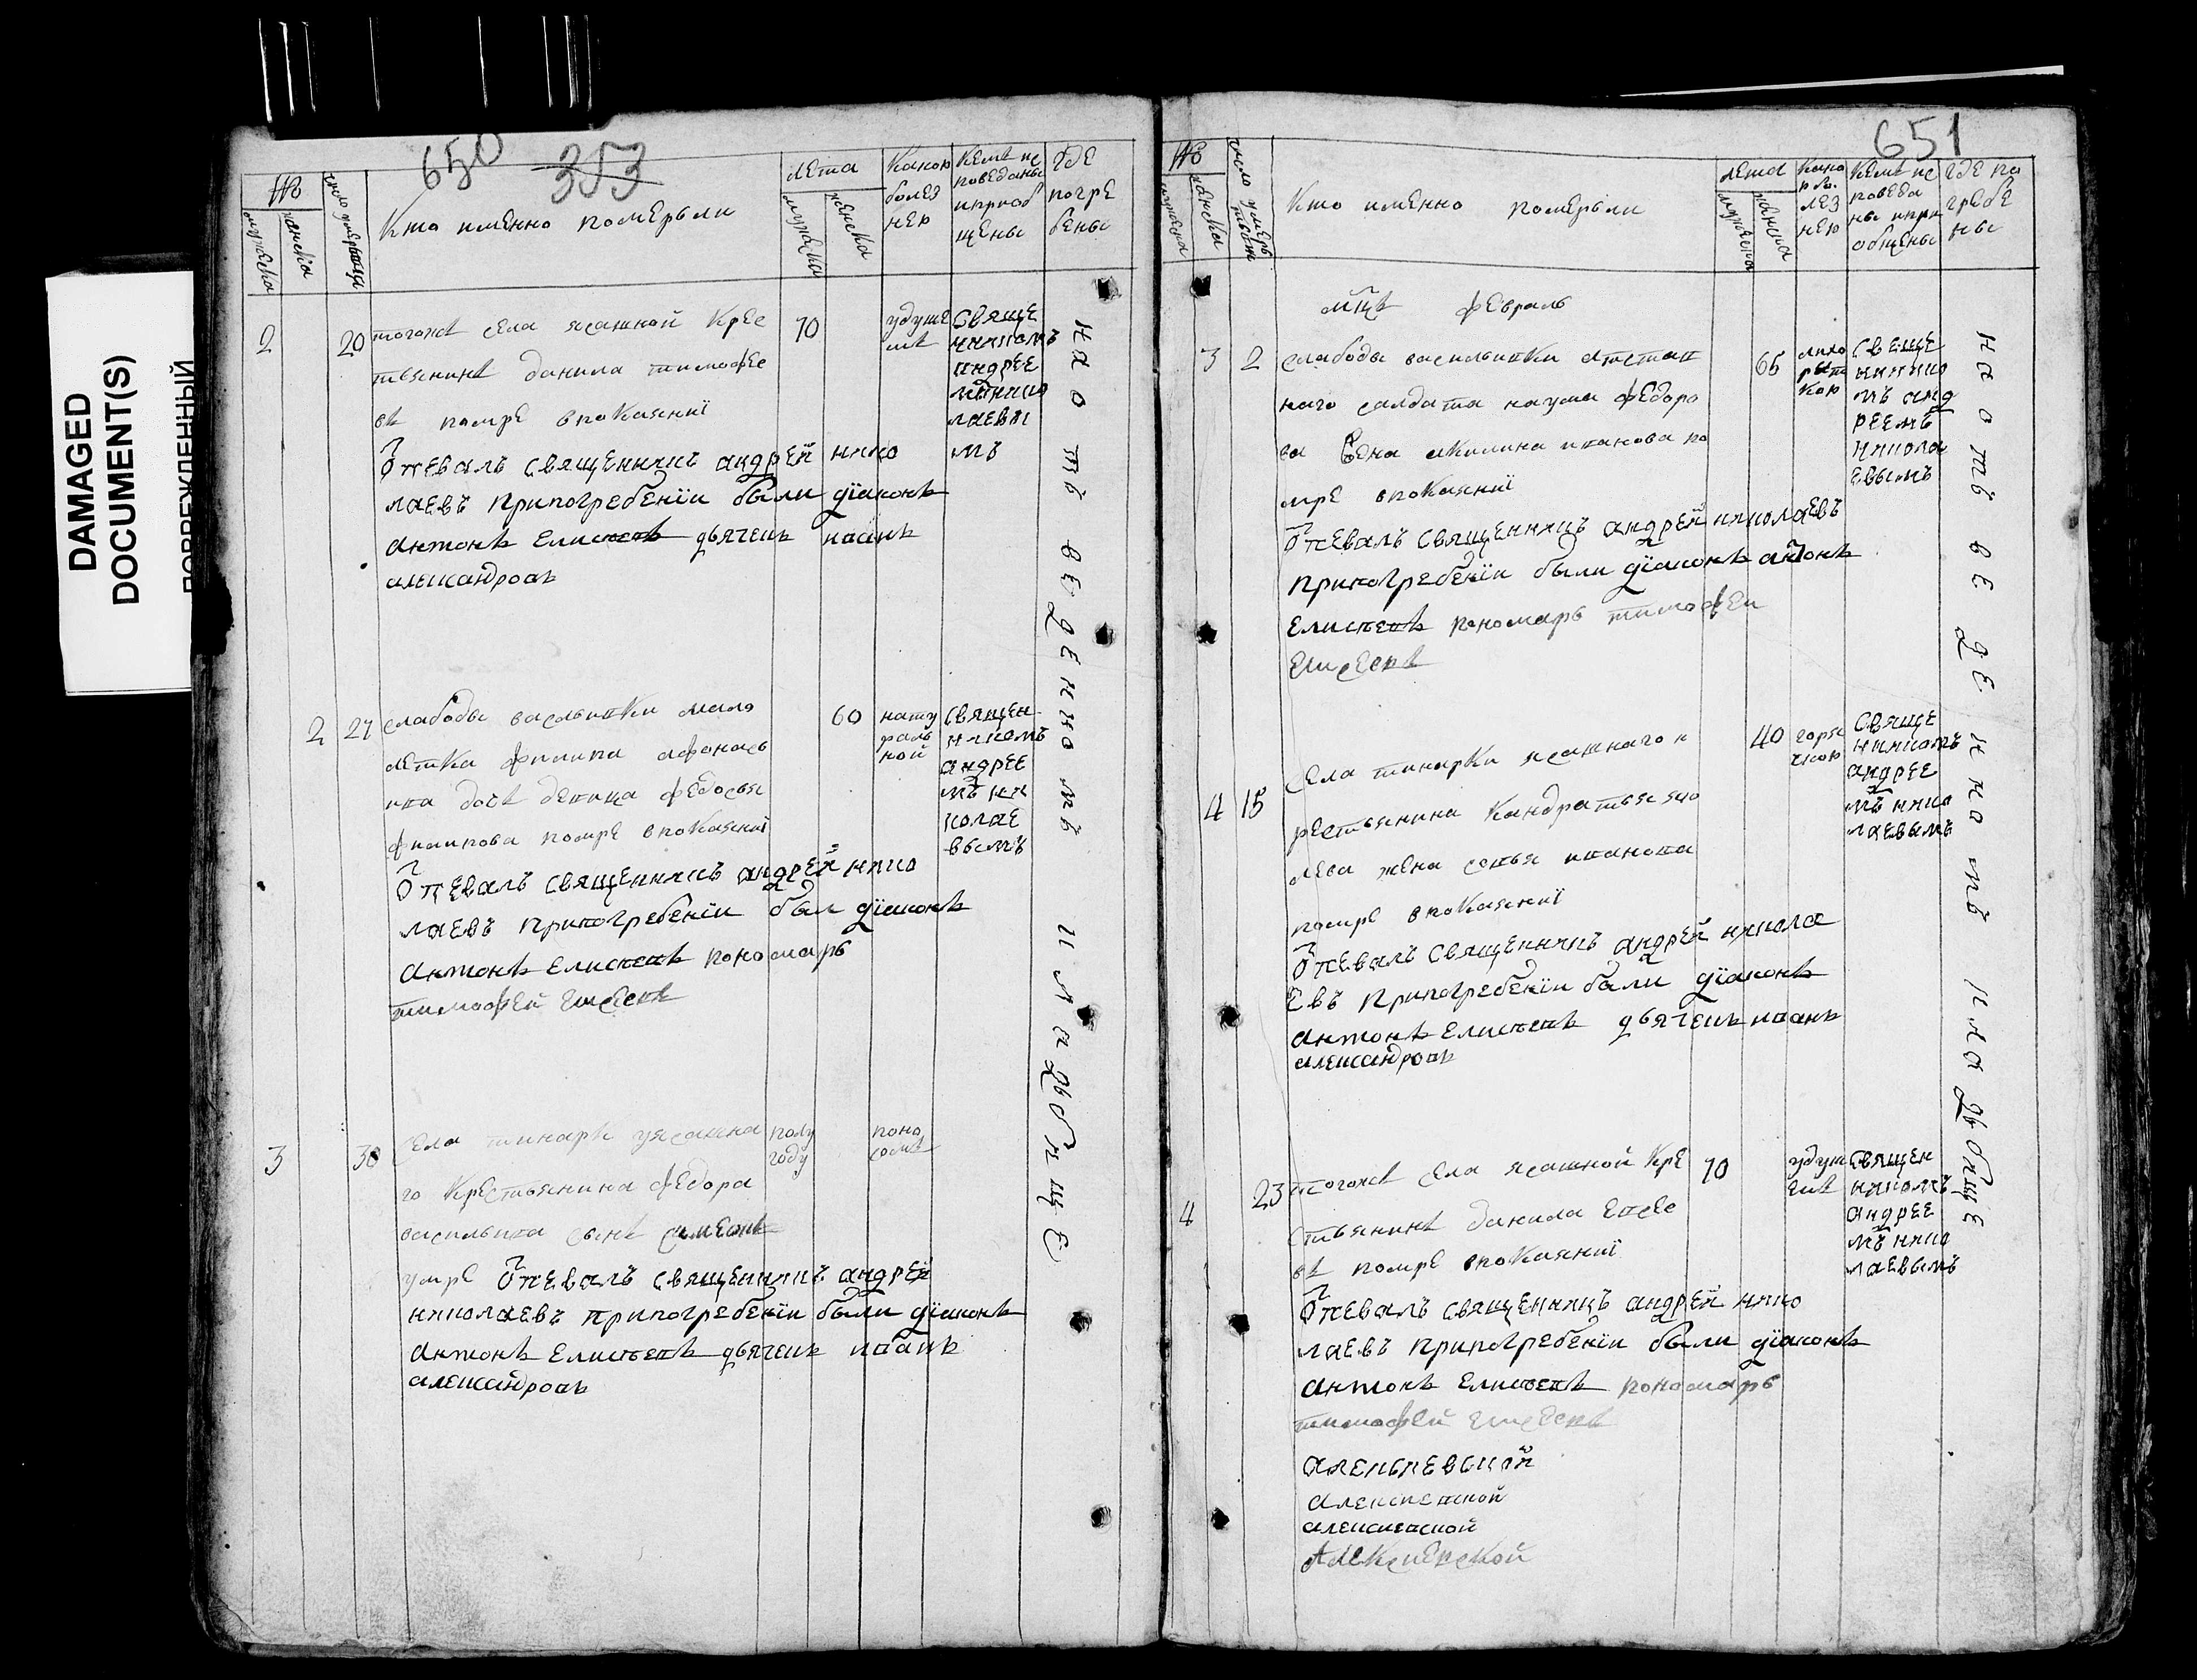 DAMAGED
DOCUMENT(S)
ПОВРЕЖДЕННЫЙ
650 353
№
мужеска
женска
Кто именно померьли
лета
мужеска
женска
Какою
болез
нею
кемъ ис
поведаны
и приоб
щены
где
погре
бены
2
20
тогожъ села ясашной крес
тьянинъ данила тимофее
въ помре в покаянїї
отпевалъ священникъ андрей нико
лаевъ при погребенїи были дїаконъ
антонъ Елисеевъ дьячекъ иванъ
александровъ
70
удуше
емъ
свяще
нникомъ
андрее
мъ нико
лаевы
мъ
2
27
слабоды васильевки мало
летка филипа афонась
ева дочь девица федосья
филипова помре в покаянїї
отпевалъ священникъ андрей нико
лаевъ при погребенїи был дїаконъ
антонъ Елисеевъ пономарь
тимофей Елисеевъ
60
нату
раль
ной
священ
никомъ
андрее
мъ ни
колае
вымъ
3
30
села тинарк уясашна
го крестьянина федора
васильева сынъ семенъ
умре отпевалъ священникъ андрей
николаевъ при погребенїи были дїаконъ
антонъ Елисеевъ дьячекъ иванъ
александровъ
полу
году
поно
сомъ
на отъведенномъ кладъбище
651
№
мужеска
женска
Кто именно померьли
лета
мужеска
женска
како
ю бо
лез
нею
кемъ ис
поведа
ны и при
общены
где по
гребе
ны
мцъ февраль
3
2
слабоды васильевки атстав
наго салдата наума федоро
ва вдова акилина иванова по
мре в покаянїї
отпевалъ священникъ андрей николаевъ
при погребенїи были дїаконъ антонъ
Елисеевъ пономарь тимофеи
Елисеевъ
65
лихо
рат
кою
свеще
ннико
мъ анд
реемъ
никола
евымъ
4
15
села тинарки ясашнаго к
рестьянина кандратья яко
лева жена софья иванова
помре в покаянїї
отпевалъ священникъ андрей никола
евъ при погребенїи были дїаконъ
антонъ Елисеевъ дьячекъ иванъ
александровъ
40
горя
чкою
свяще
нникомъ
андрее
мъ нико
лаевымъ
4
23
тогожъ села ясашной кре
стьянинъ данила Евсее
въ помре в покаянїї
отпевалъ священникъ андрей нико
лаевъ при погребенїи были дїаконъ
антонъ Елисеевъ пономарь
тимофей Елисеевъ
70
удуш
емъ
священ
никомъ
андрее
мъ нико
лаевымъ
на отъведенномъ кладъбище
алексиевской
алексиевской
Алексиевской